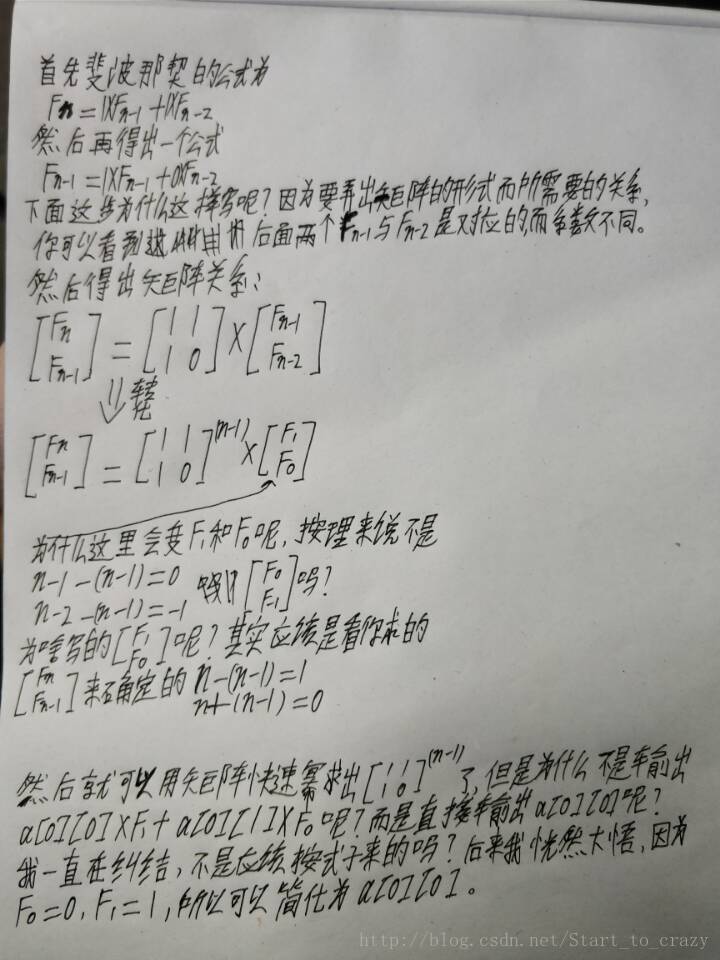 首先斐波那契的公式为
Fn=1XFn-1+1XFn-2
然后再得出一个公式
Fn-1=1XFn-1+0XFn-2
下面这步为什么这样写呢?因为要弄出矩阵的形式而所需要的关系,
你可以看到 后面两个Fn-1与Fn-2是对应的,而系数不同。
然后得出矩阵关系:
[Fn Fn-1] = [1 1 1 0] X [Fn-1 Fn-2]
⇓ 转化
[Fn Fn-1] = [1 1 1 0]^(n-1) X [F1 F0]
为什么这里会变F1和F0呢,按理来说不是
n-1-(n-1)=0
n-2-(n-1)=-1 [F0 F-1]吗?
为啥写的[F1 F0]呢?其实应该是看你求的
[Fn Fn-1]来确定的 n-(n-1)=1
n+(n-1)=0
然后就可以用矩阵快速幂求出[1 1 1 0]^(n-1)了,但是为什么不是输出
a[0][0]XF1+a[0][1]XF0呢?而是直接输出a[0][0]呢?
我一直在纠结,不是应该按式子来的吗?后来我恍然大悟,因为
F0=0,F1=1,所以可以简化为a[0][0]。
http://blog.csdn.net/Start_to_crazy